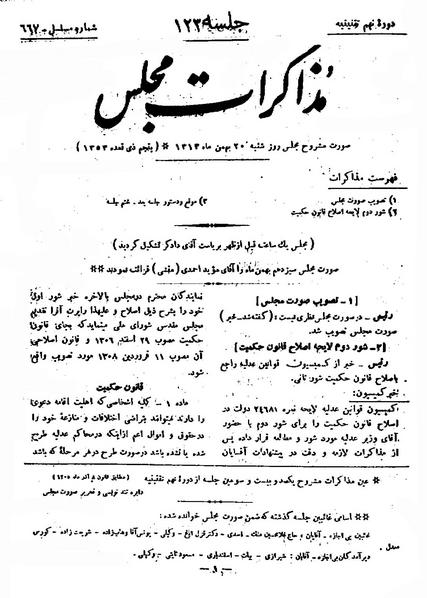 دورهٔ نهم تقنینیه
جلسه ۱۲۳
شماره مسلسل ۶۶۷
مذاکرات مجلس
صورت مشروح مجلس روز شنبه ۲۰ بهمن ماه ۱۳۱۳ * (پنجم ذی قعده ۱۳۵۳)
فهرست مذاکرات
۱) تصویب صورت مجلس
۲) شور دوم لایحه اصلاح قانون حکمیت
۳) موقع و دستور جلسه بعد ـ ختم جلسه
(مجلس یک ساعت قبل از ظهر بریاست آقای دادگر تشکیل گردید)
صورت مجلس سیزدهم بهمن ماه را آقای مؤید احمدی (منشی) قرائت نمودند **
[۱ـ تصویب صورت مجلس]
رئیس ـ در صورت مجلس نظری نیست؟ (گفتند ـ خیر)
صورت مجلس تصویب شد.
[۲ـ شور دوم لایحه اصلاح قانون حکمیت]
رئیس ـ خبر از کمیسیون قوانین عدلیه راجع
باصلاح قانون حکمیت شور ثانی.
خبر کمیسیون:
کمیسیون قوانین عدلیه لایحه نمره ۲۴۶۸۱ دولت در
اصلاح قانون حکمیت را برای شور دوم با حضور
آقای وزیر عدلیه مورد شور و مطالعه قرار داده پس
از مذاکرات لازمه و دقت در پیشنهادات آقایان
نمایندگان محترم در مجلس بالاخره خبر شور اولی
خود را بشرح ذیل اصلاح و علیهذا راپرت آنرا تقدیم
مجلس مقدس شورای ملی مینماید که بجای قانون
حکمیت مصوب ۲۹ اسفند ۱۳۰۶ و قانون اصلاحی
آن مصوب ۱۱ فروردین ۱۳۰۸ مورد تصویب واقع
شود.
قانون حکمیت
ماده ۱ ـ کلیه اشخاصی که اهلیت اقامه دعوی
را دارند میتوانند بتراضی اختلافات و منازعه خود را
در حقوق و اموال اعم از اینکه در محاکم عدلیه طرح
شده یا نشده باشد در صورت طرح در هر مرحله که باشد
* عین مذاکرات مشروح یکصد و بیست و سومین جلسه از دورهٔ نهم تقنینیه
(مطابق قانون ۸ آذر ماه ۱۳۰۵)
دایره تند نویسی و تحریر صورت مجلس
** اسامی غائبین جلسه گذشته که ضمن صورت مجلس خوانده شده: